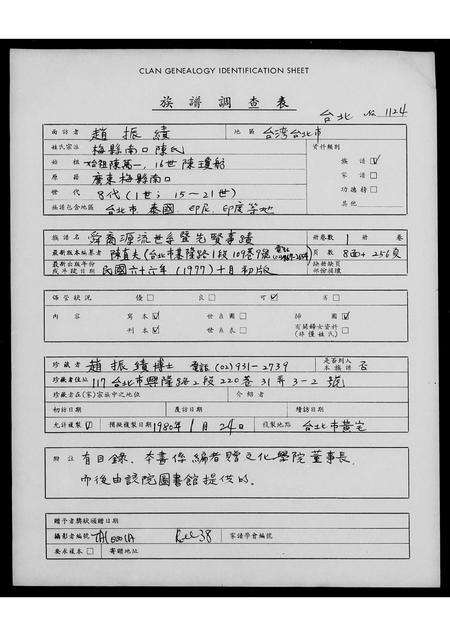 CLAN GENEALOGY IDENTIFICATION SHEET
族譜調查表
台北 No. 1124
面訪者 趙振績 地區 台湾台北市
姓氏宗注 梅縣南口陳氏 資料類別
始祖 始祖陳萬一, 16世陳瓊船 族譜 ☑
原籍 廣東梅縣南口 家譜 □
世代 8代 (1世; 15~21世) 功德榜 □
族譜包含地區 台北市, 泰國, 印尼, 印度等地 其他
族譜名 舜裔源流世系暨先賢事蹟 冊卷數 1 冊 卷
最新版本編纂者 陳直夫(台北市基隆路1段109巷9號 頁數 8面+256頁
最新出版年份或手鈔日期 民國六十六年 (1977) 十月初版 缺冊缺頁部份接續
保管狀況 優□ 良□ 可☑ 劣□
內容 寫本☑ 世系圖□ 師圖☑
刊本☑ 世系表□ 有關婦女資料(非僅姓氏)□
珍藏者 趙振績博士 電話 (02) 931-2739 是否列入本族譜 否
珍藏者住址 117 台北市興隆路2段220巷31弄3-2號
珍藏者在(家)宗族中之地位 介紹者
初訪日期 覆訪日期 續訪日期
允許複製☑ 預擬複製日期 1980年1月24日 複製地點 台北市黃宅
附注 有目録. 本書係編者贈文化學院董事長,
而後由該院圖書館提供的.
贈予者獎狀頒贈日期
攝影者編號 Roll 38 家譜學會編號
要求複本□ 寄贈地址